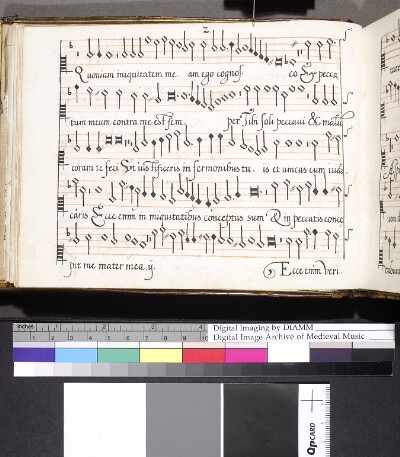 2
Quoniam iniquitatem me am ego cognos co & pecca
tum meum contra me est sem. per Tibi soli peccaui & malū
coram te feci Vt iustificeris in sermonibus tu is et uincas cum iudi
caris Ecce enim in iniquitatibus conceptus sum & in peccatis conce
pit me mater mea ij. Ecce enim veri
inches 1 2 3 4
Digital Imaging by DIAMM
cm 1 2 3 4 5 6 7 8 9 10
Digital Image Archive of Medieval Music
QPCARD